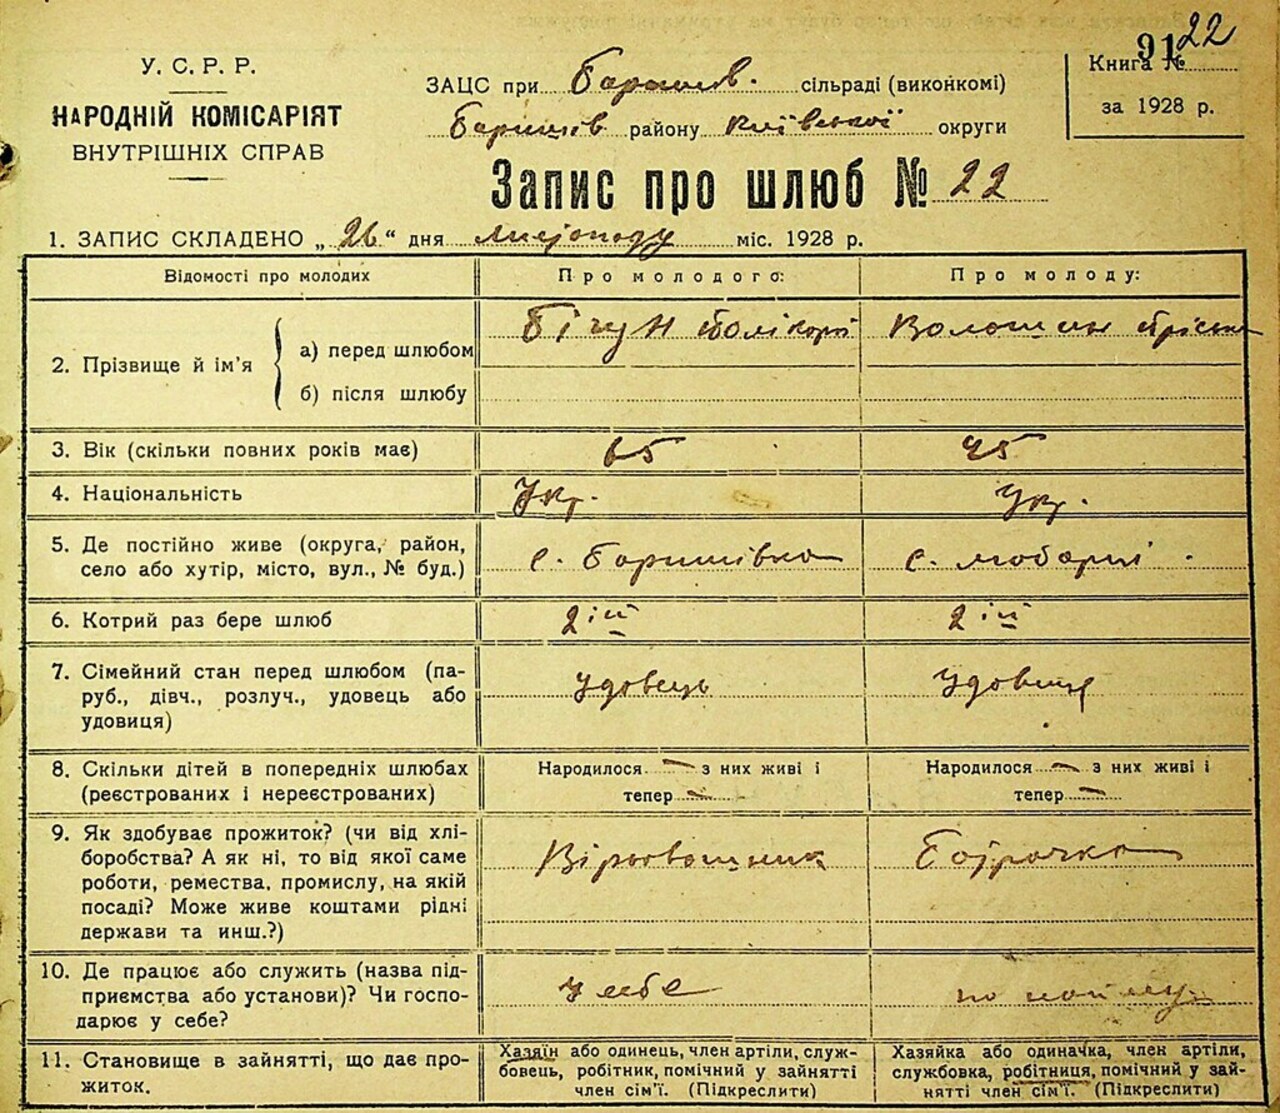 91 22
У. С. Р. Р.
НАРОДНІЙ КОМІСАРІЯТ
ВНУТРІШНІХ СПРАВ
ЗАЦС при Баришів. сільраді (виконкомі)
Баришів району Київської округи
Книга №
за 1928 р.
Запис про шлюб № 22
1. ЗАПИС СКЛАДЕНО „26“ дня листопаду міс. 1928 р.
Відомості про молодих
Про молодого:
Про молоду:
2. Прізвище й ім’я
а) перед шлюбом
б) після шлюбу
Бігун
Волошин
3. Вік (скільки повних років має)
65
45
4. Національність
Укр.
Укр.
5. Де постійно живе (округа, район,
село або хутір, місто, вул., № буд.)
с. Баришівка
с. Любарці
6. Котрий раз бере шлюб
2ій
2ій
7. Сімейний стан перед шлюбом (па-
руб., дівч., розлуч., удовець або
удовиця)
удовець
удовиця
8. Скільки дітей в попередніх шлюбах
(реєстрованих і нереєстрованих)
Народилося — з них живі і
тепер —
Народилося — з них живі і
тепер —
9. Як здобуває прожиток? (чи від хлі-
боробства? А як ні, то від якої саме
роботи, ремества, промислу, на якій
посаді? Може живе коштами рідні
держави та инш.?)
10. Де працює або служить (назва під-
приємства або установи)? Чи госпо-
дарює у себе?
у себе
по найму
11. Становище в зайнятті, що дає про-
житок.
Хазяїн або одинець, член артіли, служ-
бовець, робітник, помічний у зайнятті
член сім’ї. (Підкреслити)
Хазяйка або одиначка, член артіли,
службовка, робітниця, помічний у зай-
нятті член сім’ї. (Підкреслити)